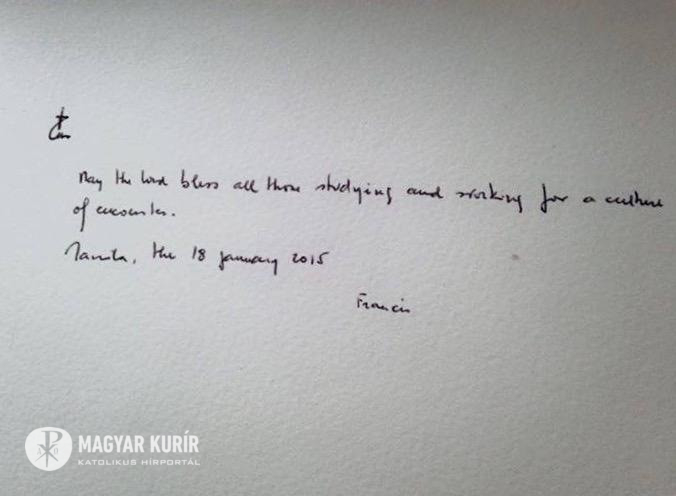 May the Lord bless all those studying and working for a culture
of encounter.
Manila, the 18 january 2015
Francis
MAGYAR KURÍR
KATOLIKUS HÍRPORTÁL